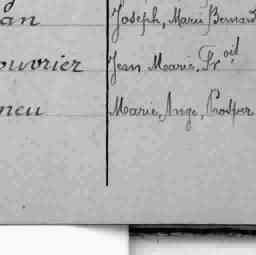 an Joseph, Marie Bernard
ouvrier Jean Marie, Fr oit
neu Marie, Ange, Prosper